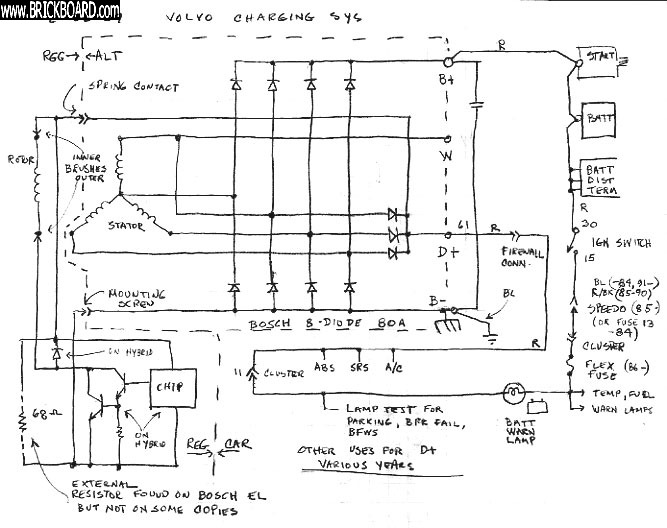 www.BRICKBOARD.com
VOLVO CHARGING SYS
REG → ← ALT
SPRING CONTACT
ROTOR
INNER
BRUSHES
OUTER
STATOR
MOUNTING
SCREW
B+
W
61
D+
B-
BOSCH 8-DIODE 80A
R
START
BATT
BATT
DIST
TERM
R
30
IGN SWITCH
15
R
FIREWALL
CONN.
BL
BL (-84, 91-)
R/BK (85-90)
SPEEDO (85-)
(OR FUSE 13
-84)
CLUSTER
FLEX
FUSE (86-)
TEMP, FUEL
WARN LAMPS
R
11
CLUSTER
ABS
SRS
A/C
LAMP TEST FOR
PARKING, BRK FAIL,
BFWS
BATT
WARN
LAMP
OTHER USES FOR D+
VARIOUS YEARS
ON HYBRID
CHIP
68Ω
ON
HYBRID
REG
CAR
EXTERNAL
RESISTOR FOUND ON BOSCH EL
BUT NOT ON SOME COPIES